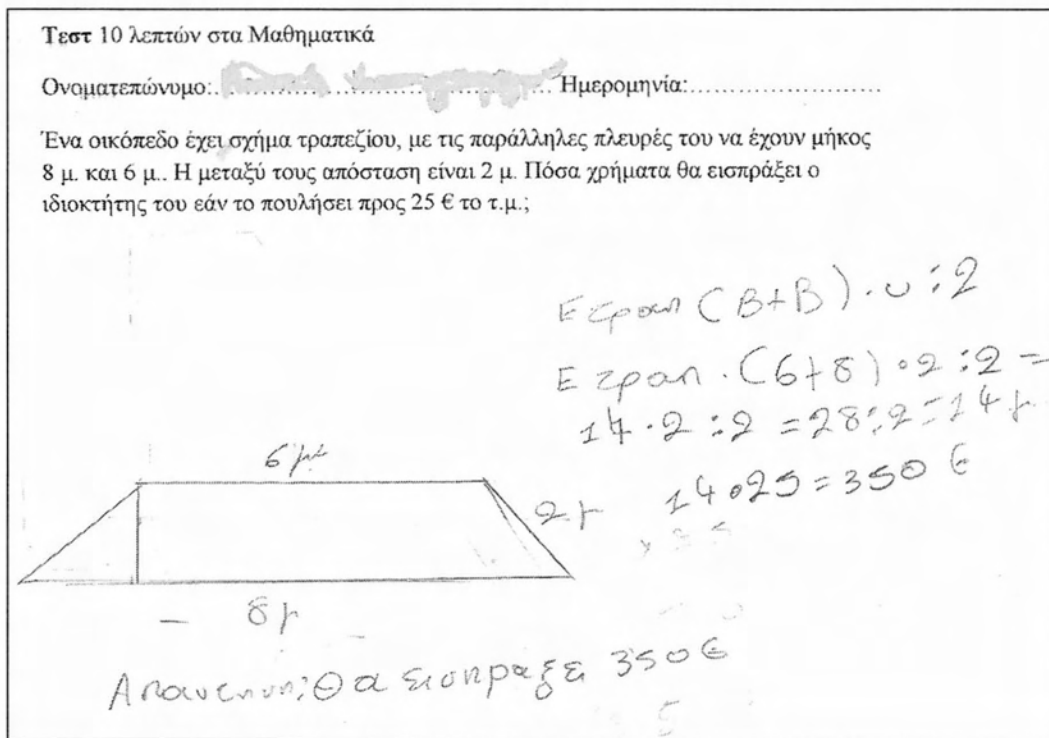 Τεστ 10 λεπτών στα Μαθηματικά
Ονοματεπώνυμο:.................... Ημερομηνία:........................
Ένα οικόπεδο έχει σχήμα τραπεζίου, με τις παράλληλες πλευρές του να έχουν μήκος
8 μ. και 6 μ.. Η μεταξύ τους απόσταση είναι 2 μ. Πόσα χρήματα θα εισπράξει ο
ιδιοκτήτης του εάν το πουλήσει προς 25 € το τ.μ.;
Ε τραπ (Β+Β) · υ : 2
Ε τραπ. (6+8) · 2 : 2 =
14 · 2 : 2 = 28 : 2 = 14 μ
14 · 25 = 350 €
6 μ
2 μ
8 μ
Απαντηση: Θα εισπραξε 350 €